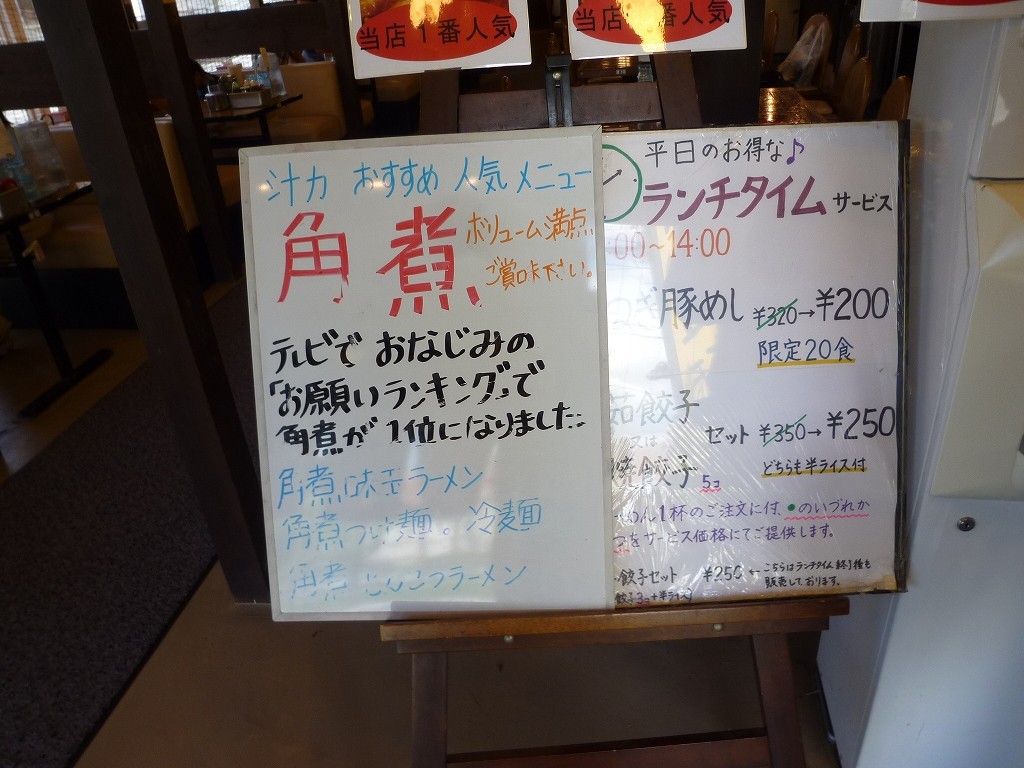 当店1番人気
当店1番人気
汁力 おすすめ 人気 メニュー
角煮
ボリューム満点
ご賞味下さい。
テレビで おなじみの
「お願いランキング」で
角煮が 1位になりました
角煮味玉ラーメン
角煮つけ麺。冷麺
角煮とんこつラーメン
平日のお得な♪
ランチタイム サービス
:00~14:00
ぎ豚めし ¥320→¥200
限定20食
茹餃子
又は
セット ¥350→¥250
焼餃子 5コ
どちらも半ライス付
めん1杯のご注文に付、●のいづれか
つをサービス価格にてご提供します。
餃子セット ¥250 ←こちらはランチタイム終了後も
販売しております。
餃子3コ+半ライス